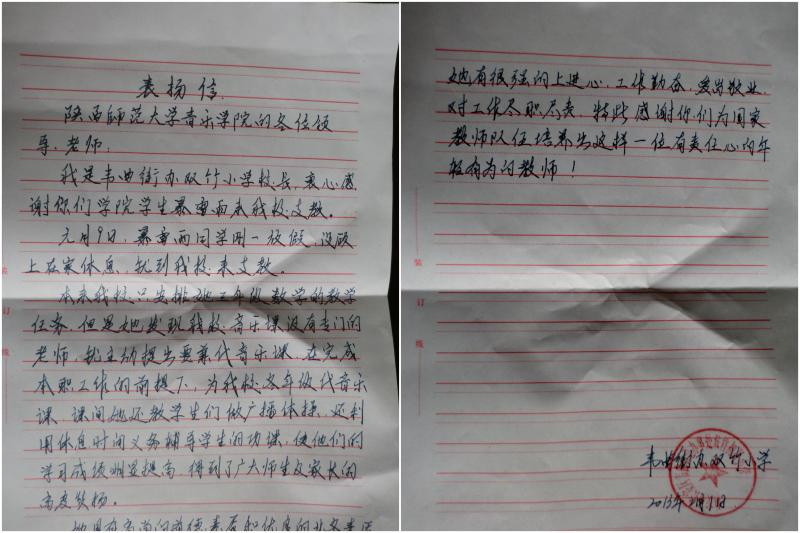 表扬信
陕西师范大学音乐学院的各位领
导、老师:
我是韦曲街办双竹小学校长,衷心感
谢你们学院学生暴雪雨来我校支教。
元月9日,暴雪雨同学刚一放假,没顾
上在家休息,就到我校来支教。
本来我校只安排她三年级数学的教学
任务,但是她发现我校音乐课没有专门的
老师,就主动提出要兼代音乐课,在完成
本职工作的前提下,为我校各年级代音乐
课,课间她还教学生们做广播体操,还利
用休息时间义务辅导学生的功课,使他们的
学习成绩明显提高,得到了广大师生及家长的
高度赞扬。
她具有高尚的道德素养和优良的业务素质
她有很强的上进心,工作勤奋,爱岗敬业,
对工作尽职尽责,特此感谢你们为国家
教师队伍培养出这样一位有责任心的年
轻有为的教师!
装
订
线
装
订
线
韦曲街办双竹小学